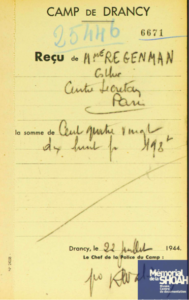 CAMP DE DRANCY
25446
6671
Reçu de Mme REGENMAN
Esther
Centre Secrétan
Paris
la somme de Cent quatre vingt
dix huit f 198 f
Drancy, le 22 juillet 1944.
Le Chef de la Police du Camp :
po
Mémorial
de la
SHOAH